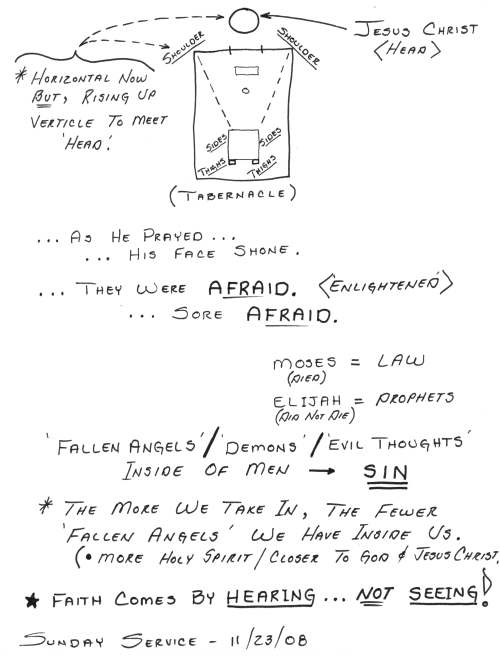 JESUS CHRIST
<HEAD>
SHOULDER
SHOULDER
* HORIZONTAL NOW
BUT, RISING UP
VERTICLE TO MEET
'HEAD'.
SIDES
SIDES
THIGHS
THIGHS
(TABERNACLE)
... AS HE PRAYED ...
... HIS FACE SHONE.
... THEY WERE AFRAID. <'ENLIGHTENED'>
... SORE AFRAID.
MOSES = LAW
(DIED)
ELIJAH = PROPHETS
(DID NOT DIE)
'FALLEN ANGELS' / 'DEMONS' / 'EVIL THOUGHTS'
INSIDE OF MEN → SIN
* THE MORE WE TAKE IN, THE FEWER
'FALLEN ANGELS' WE HAVE INSIDE US.
(• MORE HOLY SPIRIT / CLOSER TO GOD & JESUS CHRIST.
★ FAITH COMES BY HEARING ... NOT SEEING!
SUNDAY SERVICE - 11/23/08